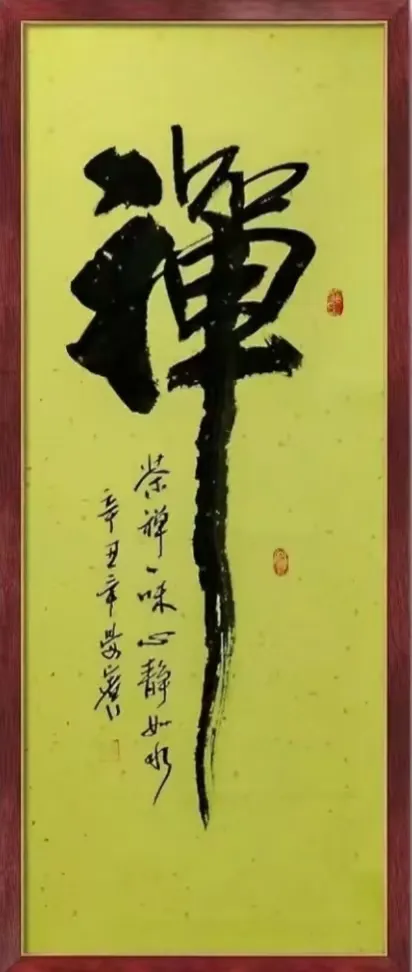 禪
茶禪一味心靜如水
辛丑年